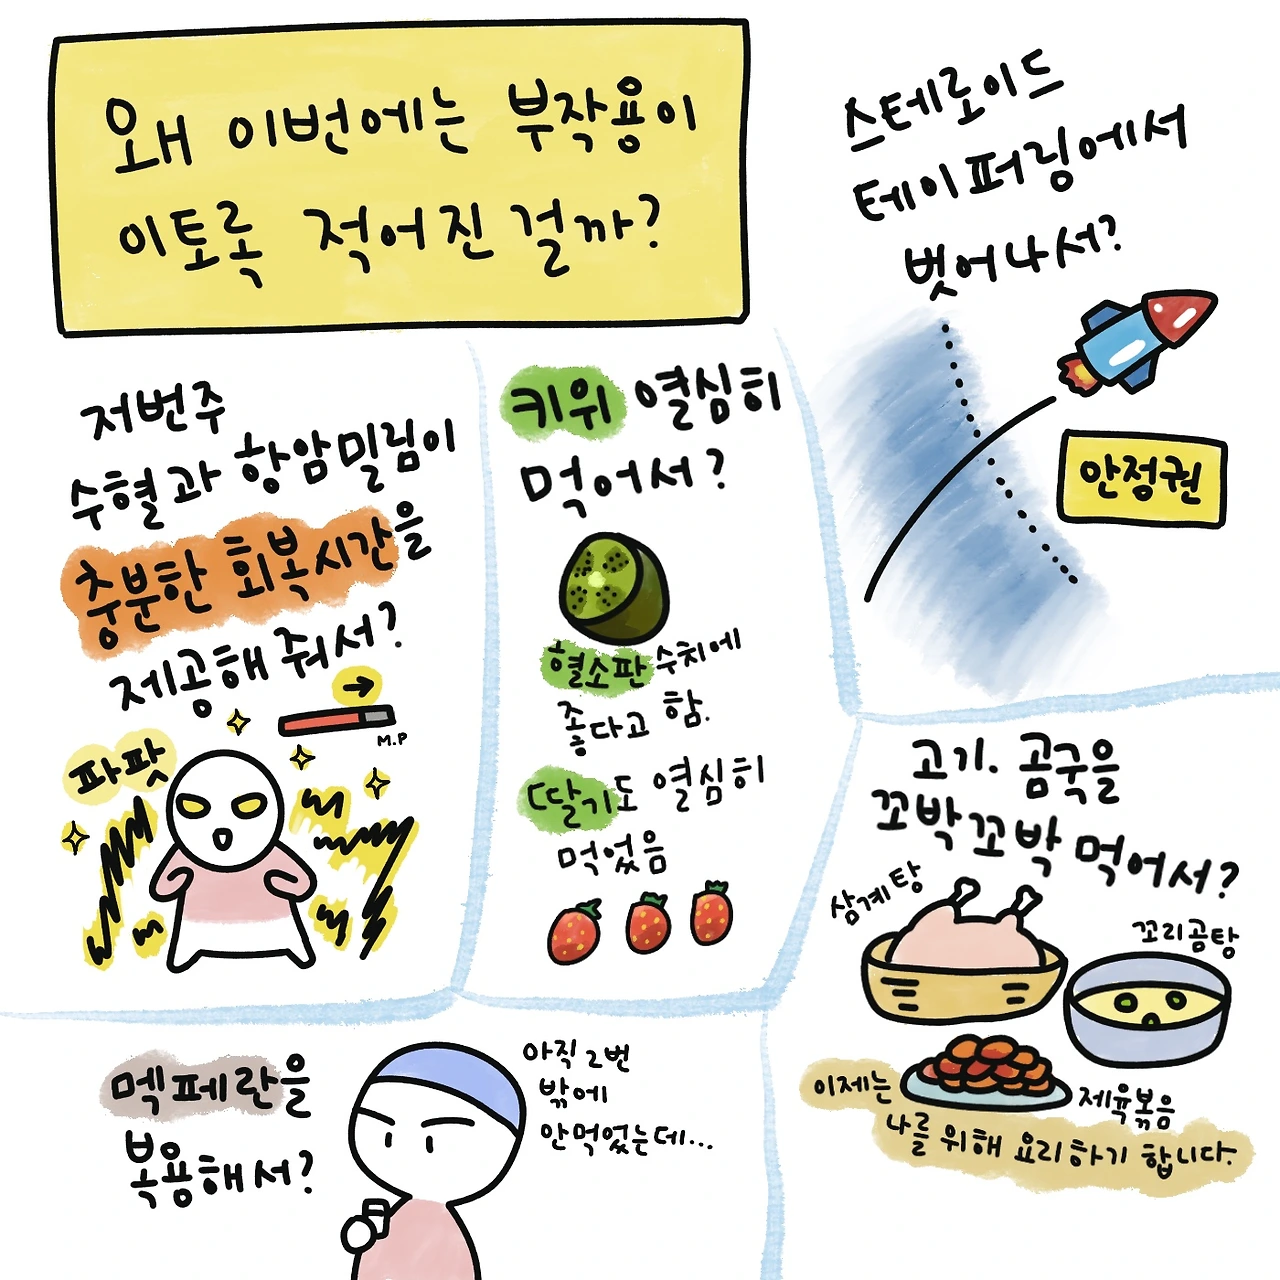 왜 이번에는 부작용이
이토록 적어진 걸까?
스테로이드
테이퍼링에서
벗어나서?
안정권
저번주
수혈과 항암밀림이
충분한 회복시간을
제공해 줘서?
→
M.P
파팟
키위 열심히
먹어서?
혈소판 수치에
좋다고 함.
딸기도 열심히
먹었음
고기. 곰국을
꼬박꼬박 먹어서?
삼계탕
꼬리곰탕
제육볶음
이제는
나를 위해 요리하기 합니다.
멕페란을
복용해서?
아직 2번
밖에
안먹었는데...